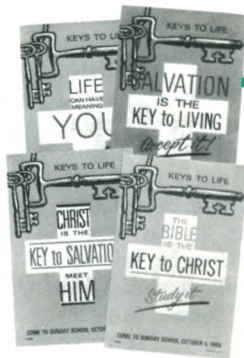 KEYS TO LI
LIFE
CAN HAVE
MEANING
YOU
SALVATION
IS THE
KEY to LIVING
Accept it!
KEYS TO LIFE
CHRIST
IS THE
KEY to SALVATIO
MEET
HIM
COME TO SUNDAY SCHOOL, OCTO
KEYS TO LIFE
THE
BIBLE
IS THE
KEY to CHRIST
Study it
COME TO SUNDAY SCHOOL, OCTOBER